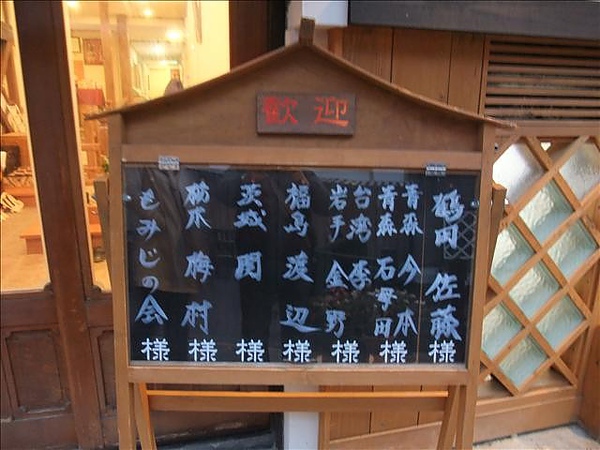 歓迎
鶴岡 佐藤 様
青森 今本
青森 石母田 様
台湾 李
岩手 金野 様
福島 渡辺 様
茨城 関 様
栃木 梅村 様
もみじの会 様